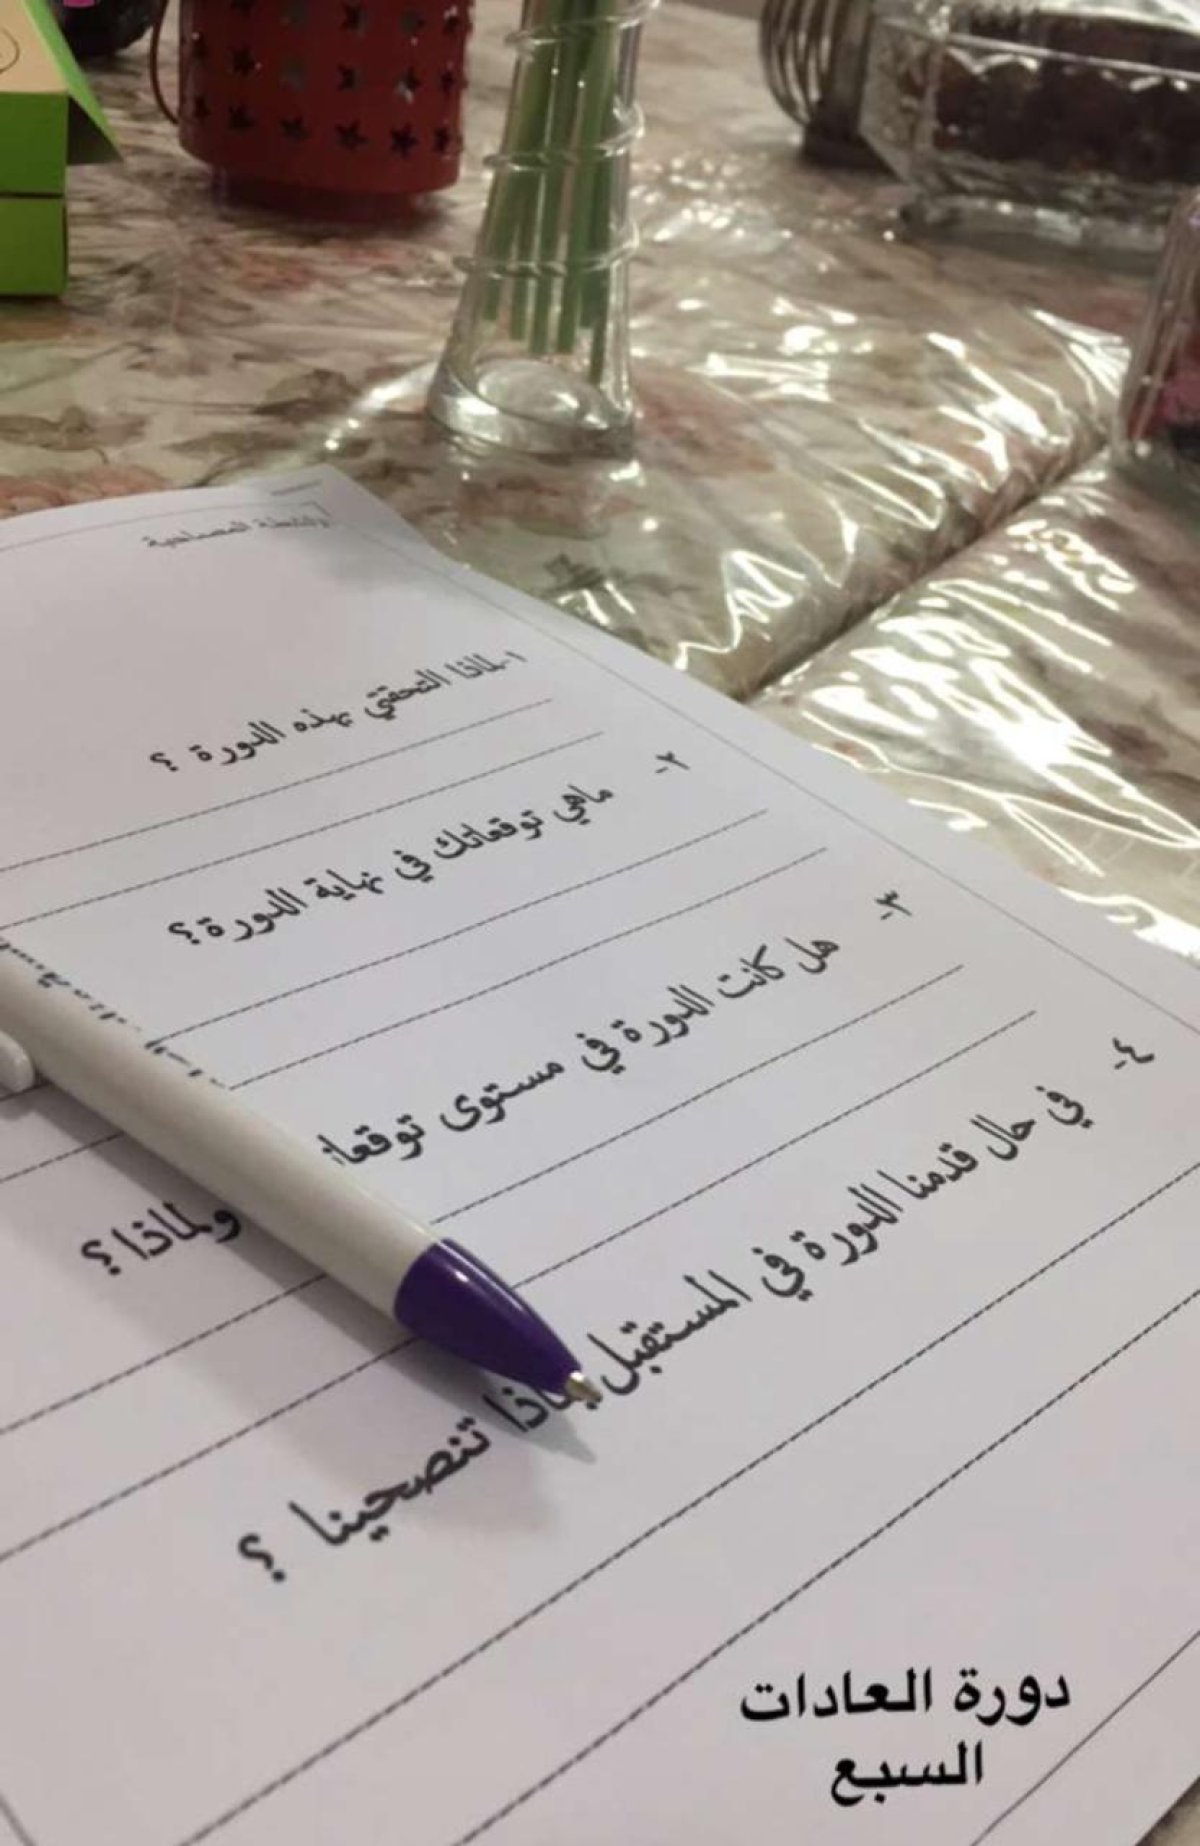 ١-لماذا التحقتي بهذه الدورة ؟
٢- ماهي توقعاتك في نهاية الدورة؟
٣- هل كانت الدورة في مستوى
ولماذا؟
٤- في حال قدمنا الدورة في المستقبل
تنصحينا ؟
دورة العادات
السبع